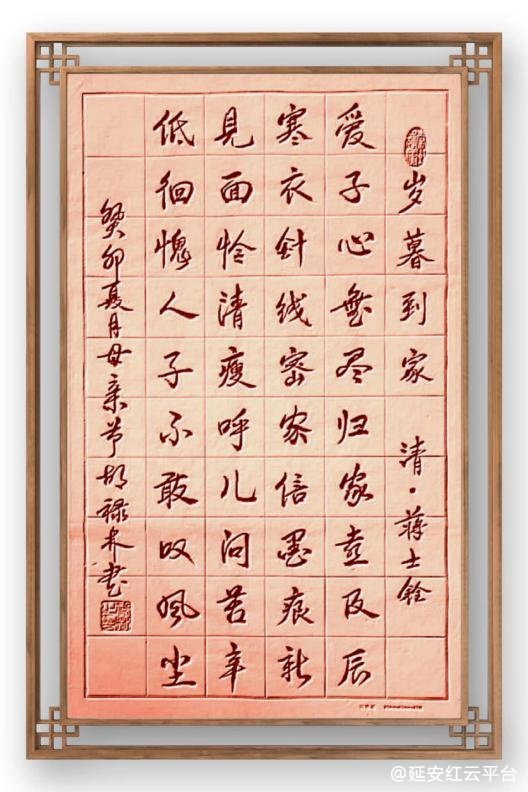 岁暮到家 清·蒋士铨
爱子心无尽归家喜及辰
寒衣针线密家信墨痕新
见面怜清瘦呼儿问苦辛
低徊愧人子不敢叹风尘
癸卯夏月母亲节胡禄林书
@延安红云平台